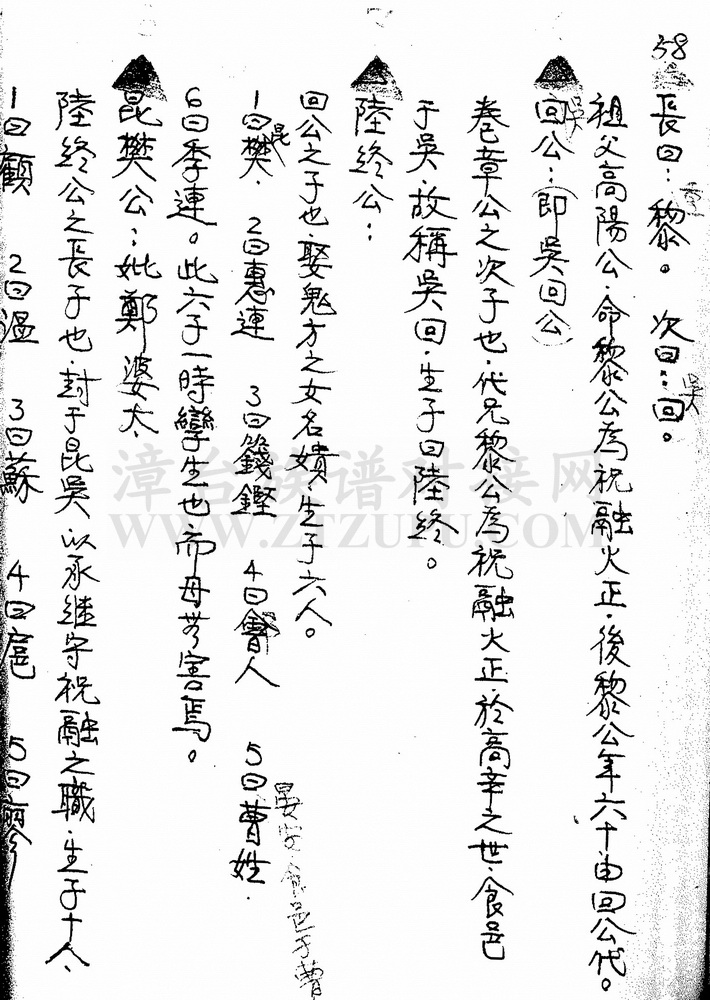 58
長曰：黎。 次曰：回。
重
吳
祖父高陽公．命黎公為祝融火正．後黎公年六十由回公代。
回公：（即吳回公）
吳
卷章公之次子也．代兄黎公為祝融火正．於高辛之世．食邑
于吳．故稱吳回．生子曰陸終。
陸終公：
回公之子也．娶鬼方之女名嬇．生子六人。
1曰樊． 2曰惠連 3曰籛鏗 4曰會人 5曰曹姓．
昆
晏安食邑于曹
6曰季連。此六子一時孿生也而母無害焉。
昆樊公：妣鄭婆太、
陸終公之長子也．封于昆吳．以承継守祝融之職．生子十人、
1曰顧 2曰溫 3曰蘇 4曰扈 5曰廖
漳台族谱对接网
WWW.ZTZUPU.COM